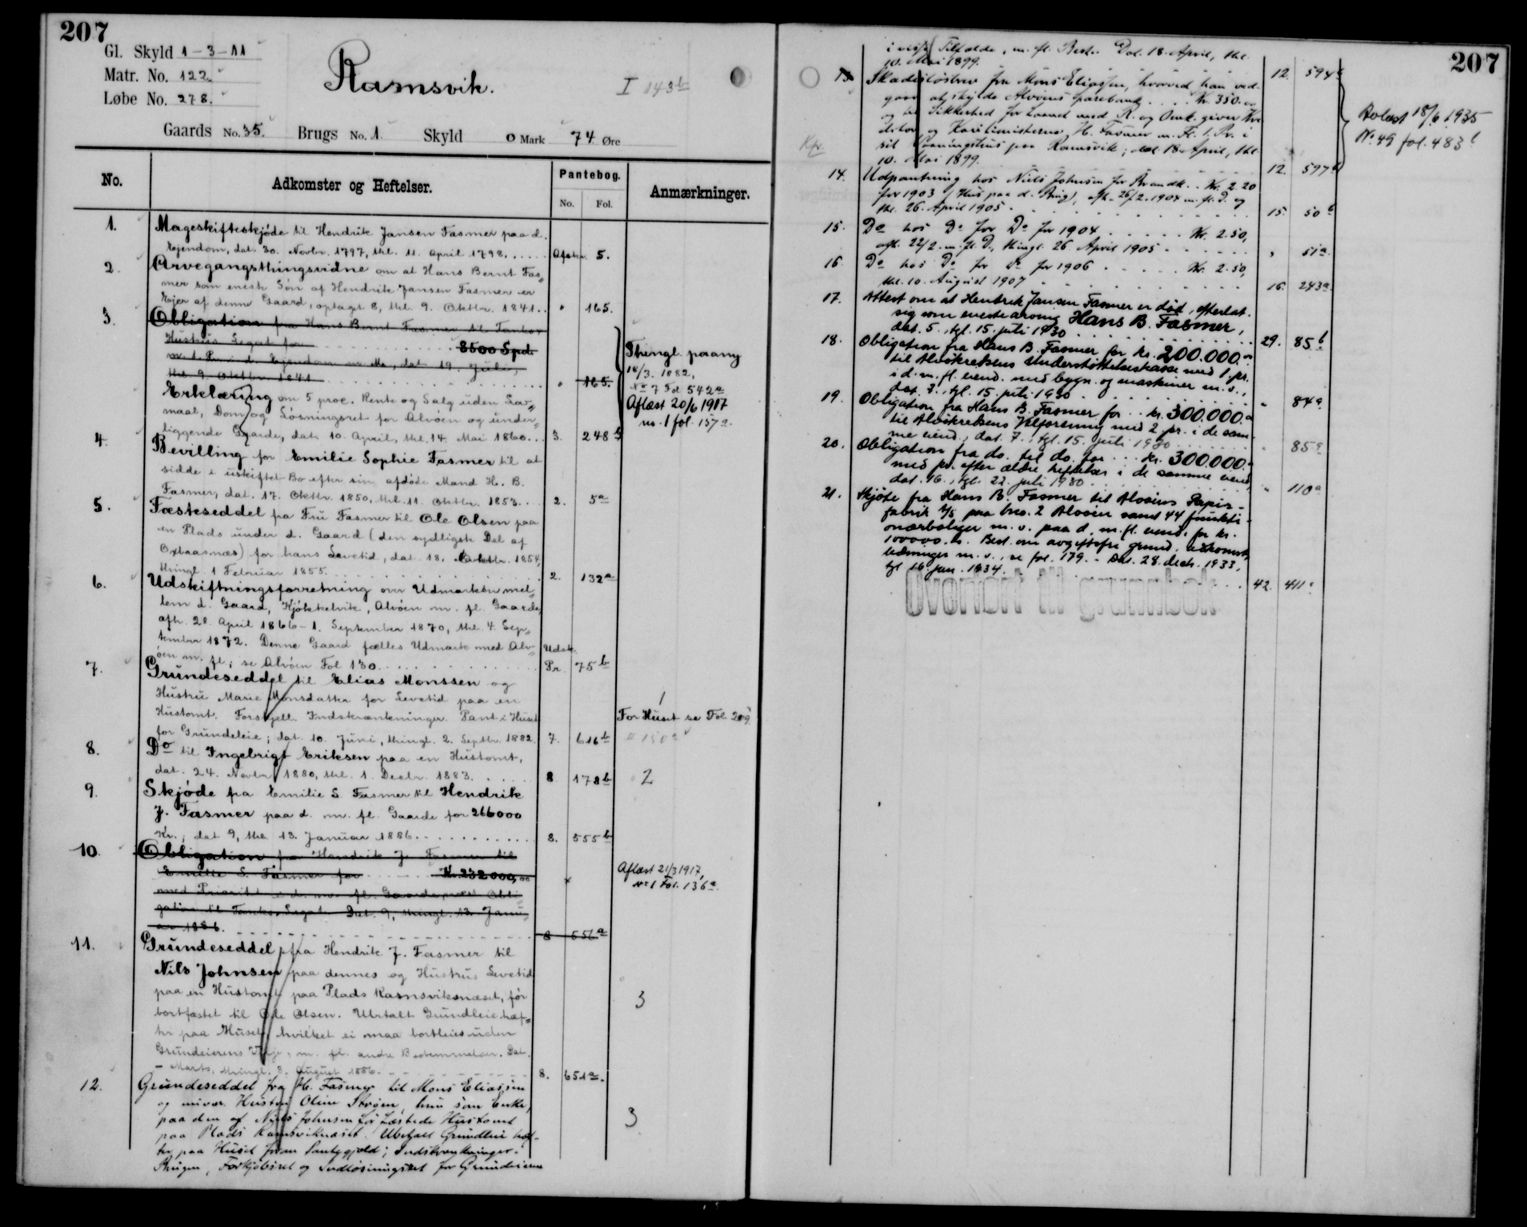 207
Gl. Skyld 1-3-11
Matr. No. 122
Løbe No. 278.
Ramsvik.
I 143b
Gaards No. 35. Brugs No. 1 Skyld 0 Mark 74 Øre
No.
Adkomster og Heftelser.
Pantebog.
No. Fol.
Anmærkninger.
1. Mageskifteskjøde til Hendrik Jansen Fasmer paa d.
Ejendom, dat. 30. Novbr. 1797, thl. 11. April 1798. 5.
2. Arvegangsthingsvidne om at Hans Bernt Fas-
mer som eneste Søn af Hendrik Jansen Fasmer er
Ejer af denne Gaard, optagt 8, thl. 9. Oktbr. 1841. " 165.
3. Obligation fra Hans Bernt Fasmer til Fanke
Hustrus Legat for 8500 Spd.
m. 1. Pr. i d. Ejendom m. Me, dat. 19. Juli,
thl. 9. Oktbr. 1841 " 165.
Thingl. paany
14/3. 1882,
No 7 Fol. 542a
Aflæst 20/6 1917
no. 1 fol. 157a.
Erklæring om 5 proc. Rente og Salg uden Lov-
maal, Dom og Løsningsret for Alvøen og under-
liggende Gaarde, dat. 10. April, thl. 14. Mai 1860. 3. 248b
4. Bevilling for Emilie Sophie Fasmer til at
sidde i uskiftet Bo efter sin afdøde Mand H. B.
Fasmer, dat. 17. Oktbr. 1850, thl. 11. Oktbr. 1853. 2. 5a
5. Fæsteseddel fra Fru Fasmer til Ole Olsen paa
en Plads under d. Gaard (den sydligste Del af
for hans Levetid, dat. 18. Oktbr. 1854,
thingl. 1 Februar 1855. 2. 132a
6. Udskiftningsforretning over Udmarken mel-
lem d. Gaard, Kjøkkelvik, Alvøen m. fl. Gaarde,
afh. 28. April 1866 - 1. September 1870, thl. 4. Sep-
tember 1872. Denne Gaard fælles Udmark med Alv-
øen m. fl.; se Alvøen Fol 130. Udsk. Pr. 75b
7. Grundeseddel til Elias Monssen og
Hustru Marie Monsdatter for Levetid paa en
Hustomt. Forskjell. Indskrænkninger. Pant i Huset
for Grundeleie; dat. 10. Juni, thingl. 2. Septbr. 1882. 7. 616b
1
For Huset se Fol. 209
8. Do til Ingebrigt Eriksen paa en Hustomt,
dat. 24. Novbr. 1880, thl. 1. Decbr. 1883. 8 178b
2
9. Skjøde fra Emilie S. Fasmer til Hendrik
J. Fasmer paa d. m. fl. Gaarde for 266000
Kr.; dat. 9, thl. 13. Januar 1886. 8. 555b
10. Obligation fra Hendrik J. Fasmer til
Emilie S. Fasmer for Kr. 232.000,00
med Prioritet i d. m. fl. Gaarde, næst Obli-
gation til Fankes Legat. Dat. 9, thingl. 13. Janu-
ar 1886. 8 556a
Aflæst 21/3 1917,
No 1 Fol. 136a.
11. Grundeseddel fra Hendrik J. Fasmer til
Nils Johnsen paa dennes og Hustrus Levetid
paa en Hustomt paa Plads Ramsviknæset, før
bortfæstet til Ole Olsen. Ubetalt Grundleie hef-
ter paa Huset, hvilket ei maa bortleies uden
Grundeierens Vilje, m. fl. andre Bestemmelser. Dat.
- Marts, thingl. 3. August 1886. 8. 651a.
3
12. Grundeseddel fra H. Fasmer til Mons Eliassen
og Hustru Oline Strøm, hun som Enke,
paa den af Niels Johnsen før fæstede Hustomt
paa Plads Ramsviknæset. Ubetalt Grundleie hef-
ter paa Huset foran Indskrænkninger i
Brugen, Forkjøbsret og Indløsningsret for Grundeieren
3
207
i visse Tilfælde, m. fl. Best. Dat. 18. April, thl.
10. Mai 1899. 12. 594b
13. Skadesløsbrev fra Mons Eliassen, hvorved han ved-
gaar at skylde Alvøens Sparebank Kr. 350.00
og til Sikkerhed for Laanet med R. og Omk. giver Kre-
ditor og Kavtionisterne H. Fasmer m. Fl. 1. Pr. i
sit Vaaningshus paa Ramsvik; dat 18. April, thl.
10. Mai 1899. 12 597b
Avlæst 18/6 1935
No. 49 fol. 483b
14. Udpantning hos Niels Johnsen for Brandk. Kr. 2.20
for 1903 (Hus paa d. Brug), afh. 26/2. 1904 m. fl. D. og
thl. 26. April 1905. 15. 50b
15. Do hos Do for Do for 1904 Kr. 2.50,
afh. 22/2. m. fl. D. thingl. 26 April 1905 " 51a
16. Do hos Do for Do for 1906 Kr. 2.50,
thl. 10. August 1907 16. 243a
17. Attest om at Hendrik Jansen Fasmer er død, efterlat.
sig som enearving Hans B. Fasmer,
dat. 5., tgl. 15. juli 1930 29. 85b
18. Obligation fra Hans B. Fasmer for kr. 200.000.00
til Alvøkredsens Understøttelseskasse med 1 pr.
i d. m. fl. eiend. med bygn. og maskiner m. v.,
dat. 7., tgl. 15. juli 1930 " 84a.
19. Obligation fra Hans B. Fasmer for kr. 300.000.00
til Alvøkredsens Velforening med 2 pr. i de sam-
me eiend., dat. 7., tgl. 15. juli 1930 " 85a
20. Obligation fra do. til do. for kr. 300.000.00
med pr. efter ældre heftelser i de samme eiend.,
dat. 16., tgl. 22. juli 1930 " 110a
21. Skjøte fra Hans B. Fasmer til Alvøens Papir-
fabrik A/S paa bno. 2 Alvøen samt 44 funkti-
onærboliger m. v. paa d. m. fl. eiend. for kr.
100000.00. Best. om avgiftsfri grund,
ledninger m. v., se fol. 179. - Dat. 28. decb. 1933,
tgl. 16. jan. 1934. 42. 411a
Overført til grunnbok